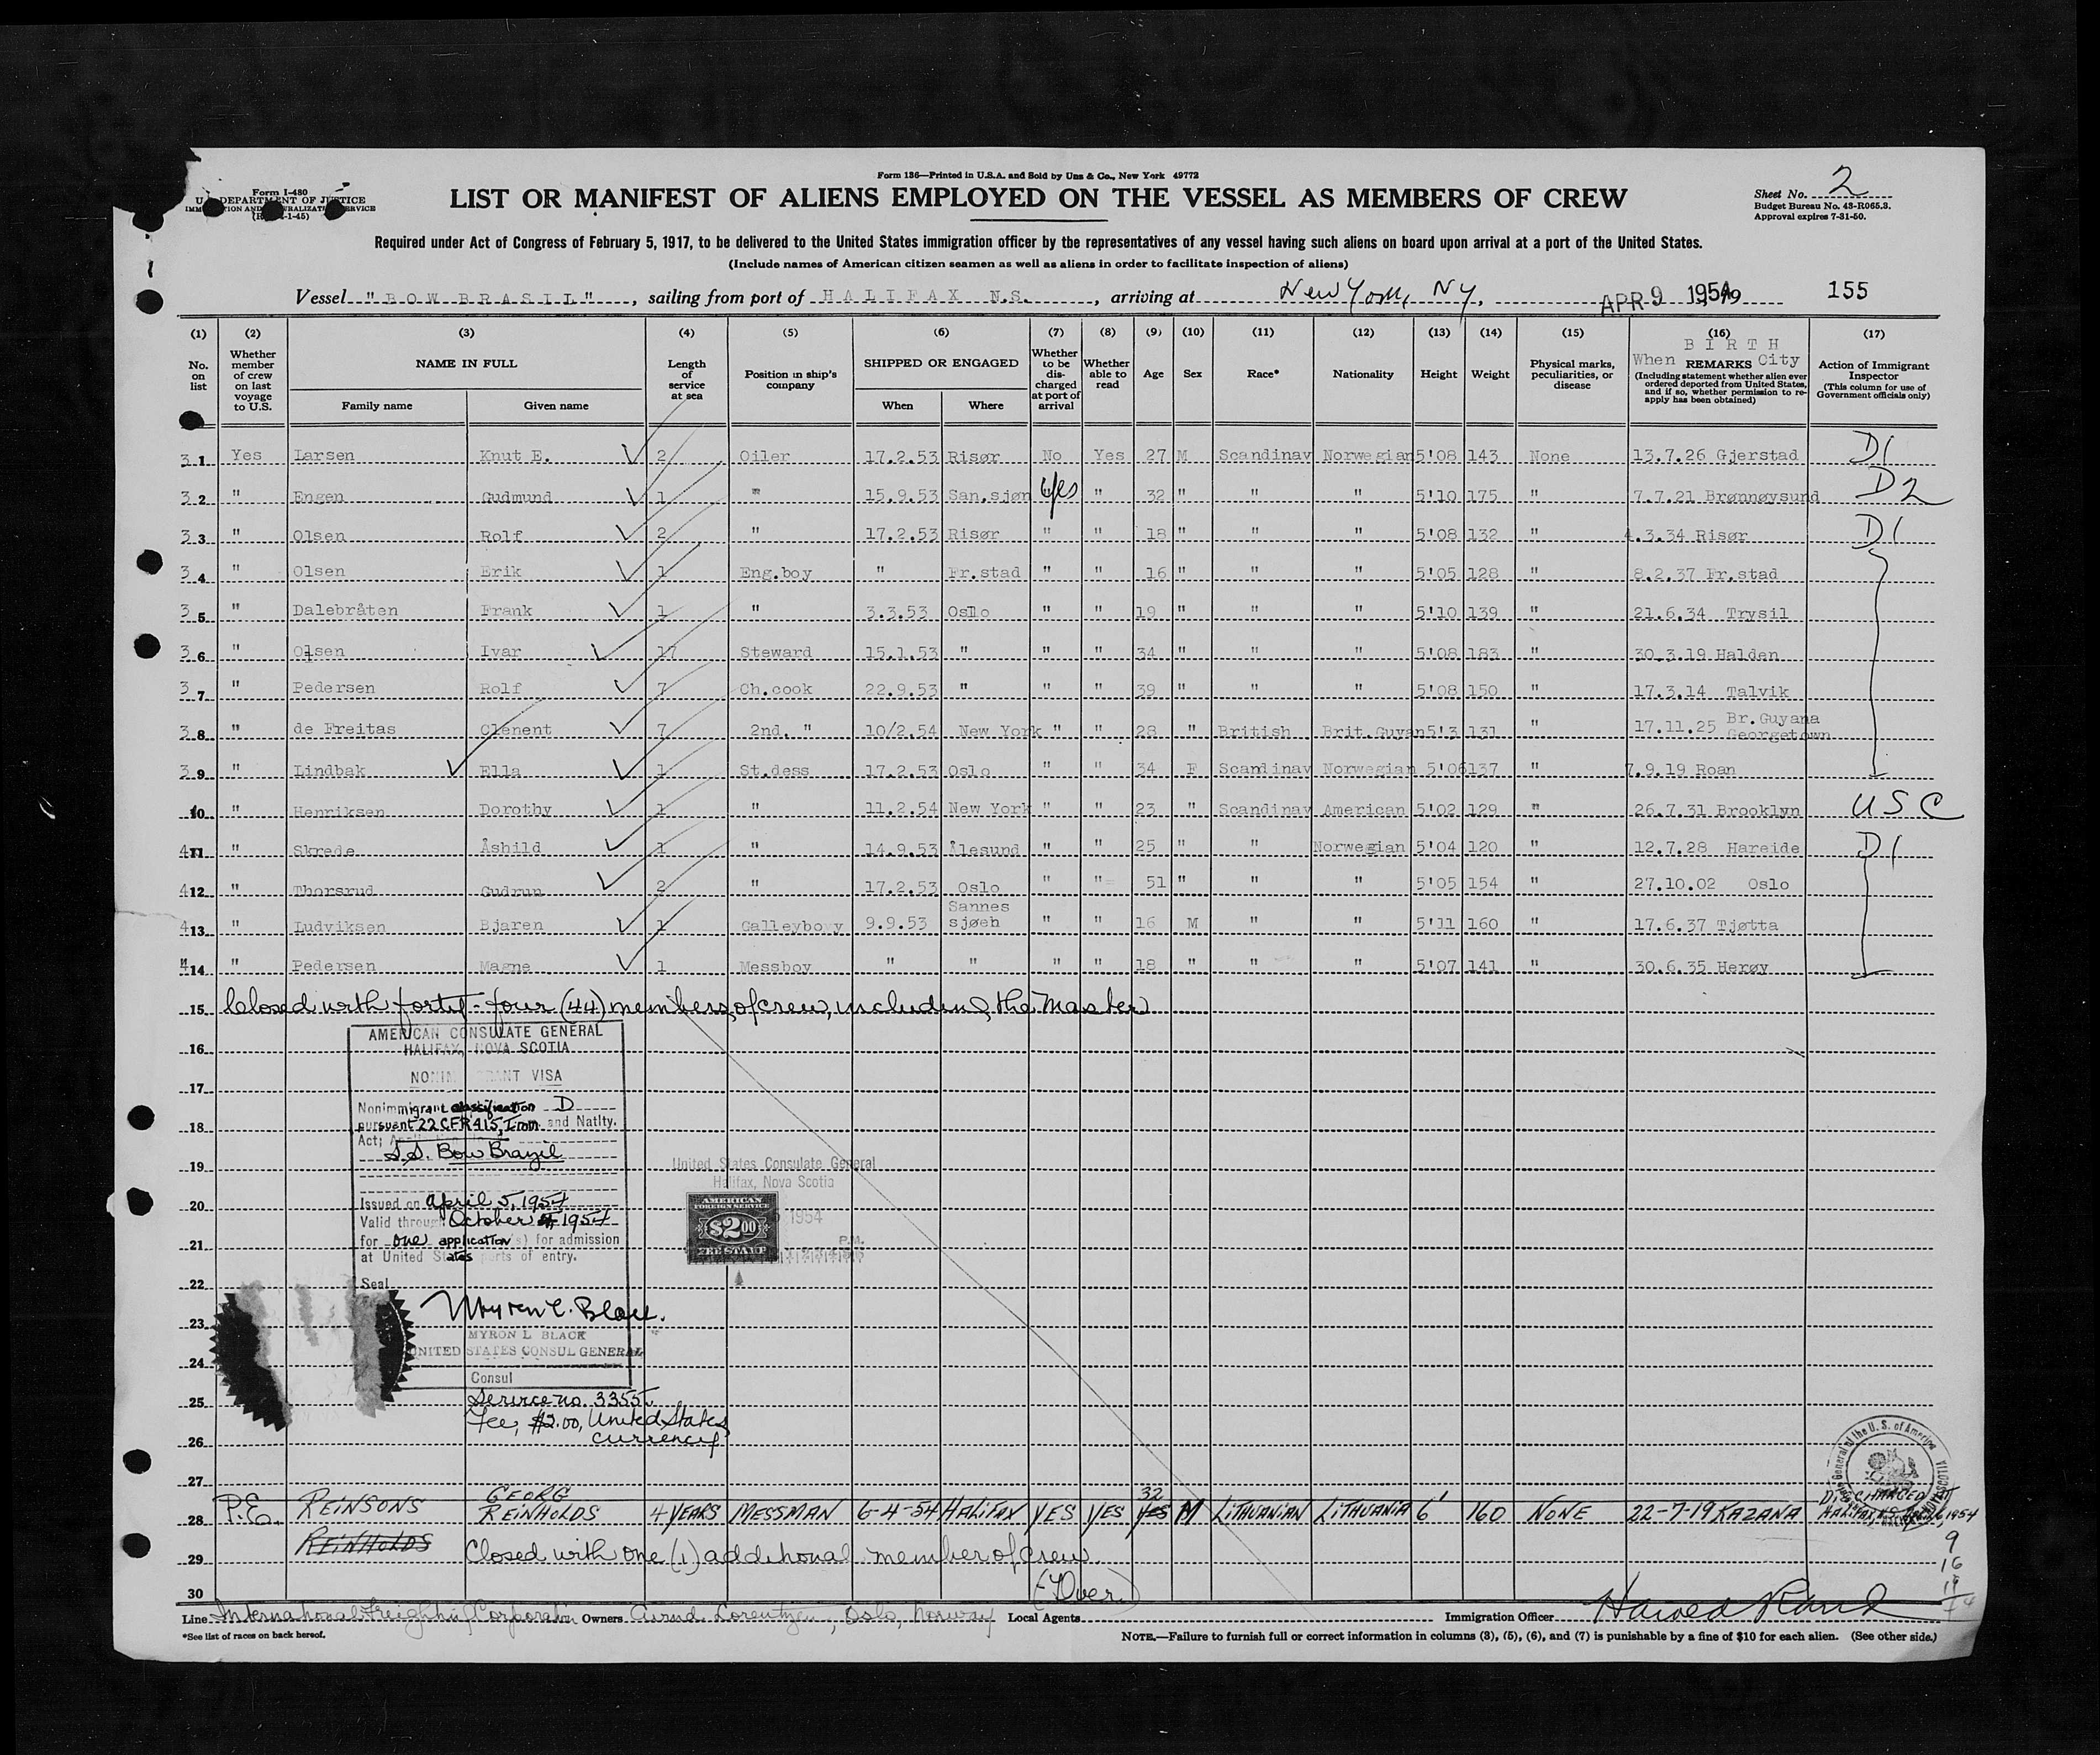 Form 136—Printed in U.S.A. and Sold by Unz & Co., New York 49772
Form I-480
U. DEPARTMENT OF JUSTICE
LIST OR MANIFEST OF ALIENS EMPLOYED ON THE VESSEL AS MEMBERS OF CREW
Sheet No. 2
Budget Bureau No. 43-R065.3.
Approval expires 7-31-50.
Required under Act of Congress of February 5, 1917, to be delivered to the United States immigration officer by the representatives of any vessel having such aliens on board upon arrival at a port of the United States.
(Include names of American citizen seamen as well as aliens in order to facilitate inspection of aliens)
Vessel "BOW BRASIL", sailing from port of HALIFAX N.S., arriving at New York, NY, APR 9 1954 155
(1) (2) (3) (4) (5) (6) (7) (8) (9) (10) (11) (12) (13) (14) (15) (16) (17)
No. on list
Whether member of crew on last voyage to U.S.
NAME IN FULL
Family name Given name
Length of service at sea
Position in ship's company
SHIPPED OR ENGAGED
When Where
Whether to be discharged at port of arrival
Whether able to read
Age
Sex
Race*
Nationality
Height
Weight
Physical marks, peculiarities, or disease
BIRTH
When REMARKS City
(Including statement whether alien ever ordered deported from United States, and if so, whether permission to re-apply has been obtained)
Action of Immigrant Inspector
(This column for use of Government officials only)
3 1 Yes Larsen Knut E. 2 Oiler 17.2.53 Risør No Yes 27 M Scandinav Norwegian 5'08 143 None 13.7.26 Gjerstad D1
3 2 " Engen Gudmund 1 " 15.9.53 San.sjøn Yes " 32 " " " 5'10 175 " 7.7.21 Brønnøysund D2
3 3 " Olsen Rolf 2 " 17.2.53 Risør " " 18 " " " 5'08 132 " 4.3.34 Risør D1
3 4 " Olsen Erik 1 Eng.boy " Fr.stad " " 16 " " " 5'05 128 " 8.2.37 Fr.stad
3 5 " Dalebråten Frank 1 " 3.3.53 Oslo " " 19 " " " 5'10 139 " 21.6.34 Trysil
3 6 " Olsen Ivar 17 Steward 15.1.53 " " " 34 " " " 5'08 183 " 30.3.19 Halden
3 7 " Pedersen Rolf 7 Ch.cook 22.9.53 " " " 39 " " " 5'08 150 " 17.3.14 Talvik
3 8 " de Freitas Clenent 7 2nd. " 10/2.54 New York " " 28 " British Brit.Guyan 5'3 131 " 17.11.25 Br.Guyana Georgetown
3 9 " Lindbak Ella 1 St.dess 17.2.53 Oslo " " 34 F Scandinav Norwegian 5'06 137 " 7.9.19 Roan
10 " Henriksen Dorothy 1 " 11.2.54 New York " " 23 " Scandinav American 5'02 129 " 26.7.31 Brooklyn USC
4 11 " Skrede Åshild 1 " 14.9.53 Ålesund " " 25 " " Norwegian 5'04 120 " 12.7.28 Hareide D1
4 12 " Thorsrud Gudrun 2 " 17.2.53 Oslo " " 51 " " " 5'05 154 " 27.10.02 Oslo
4 13 " Ludviksen Bjaren 1 Galleyboy 9.9.53 Sannes sjøeh " " 16 M " " 5'11 160 " 17.6.37 Tjøtta
14 " Pedersen Magne 1 Messboy " " " " 18 " " " 5'07 141 " 30.6.35 Herøy
15 Closed with forty-four (44) members of crew including the Master
16
17
18
19
20
21
22
23
24
25
26
27
AMERICAN CONSULATE GENERAL
HALIFAX, NOVA SCOTIA
VISA
Nonimmigrant classification D
pursuant 22 CFR 41.5, Imm. and Natlty.
Act;
S.S. Bow Brazil
Issued on April 5, 1954
Valid through October 4, 1954
for one application(s) for admission
at United States ports of entry.
Seal
Myron L. Black
MYRON L BLACK
UNITED STATES CONSUL GENERAL
Consul
Service no. 3355
Fee, $2.00, United States
currency
United States Consulate General
Halifax, Nova Scotia
1954
P.M.
AMERICAN
FOREIGN SERVICE
$2.00
FEE STAMP
28 P.E. REINSONS GEORG REINHOLDS 4 YEARS MESSMAN 6-4-54 HALIFAX YES YES 32 M LITHUANIAN LITHUANIA 6' 160 NONE 22-7-19 KAZANA
REINHOLDS
29 Closed with one (1) additional member of crew
(Over)
30
Line International Freighting Corporation Owners Oslo, Norway Local Agents Immigration Officer Harold Rand
*See list of races on back hereof.
NOTE.—Failure to furnish full or correct information in columns (3), (5), (6), and (7) is punishable by a fine of $10 for each alien. (See other side.)